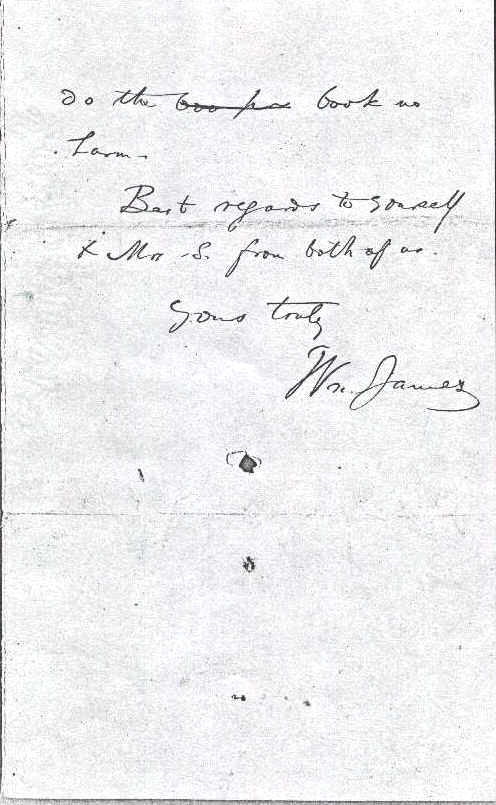 do the book no
harm.
Best regards to yourself
& Mrs S. from both of us.
Yours truly
Wm. James